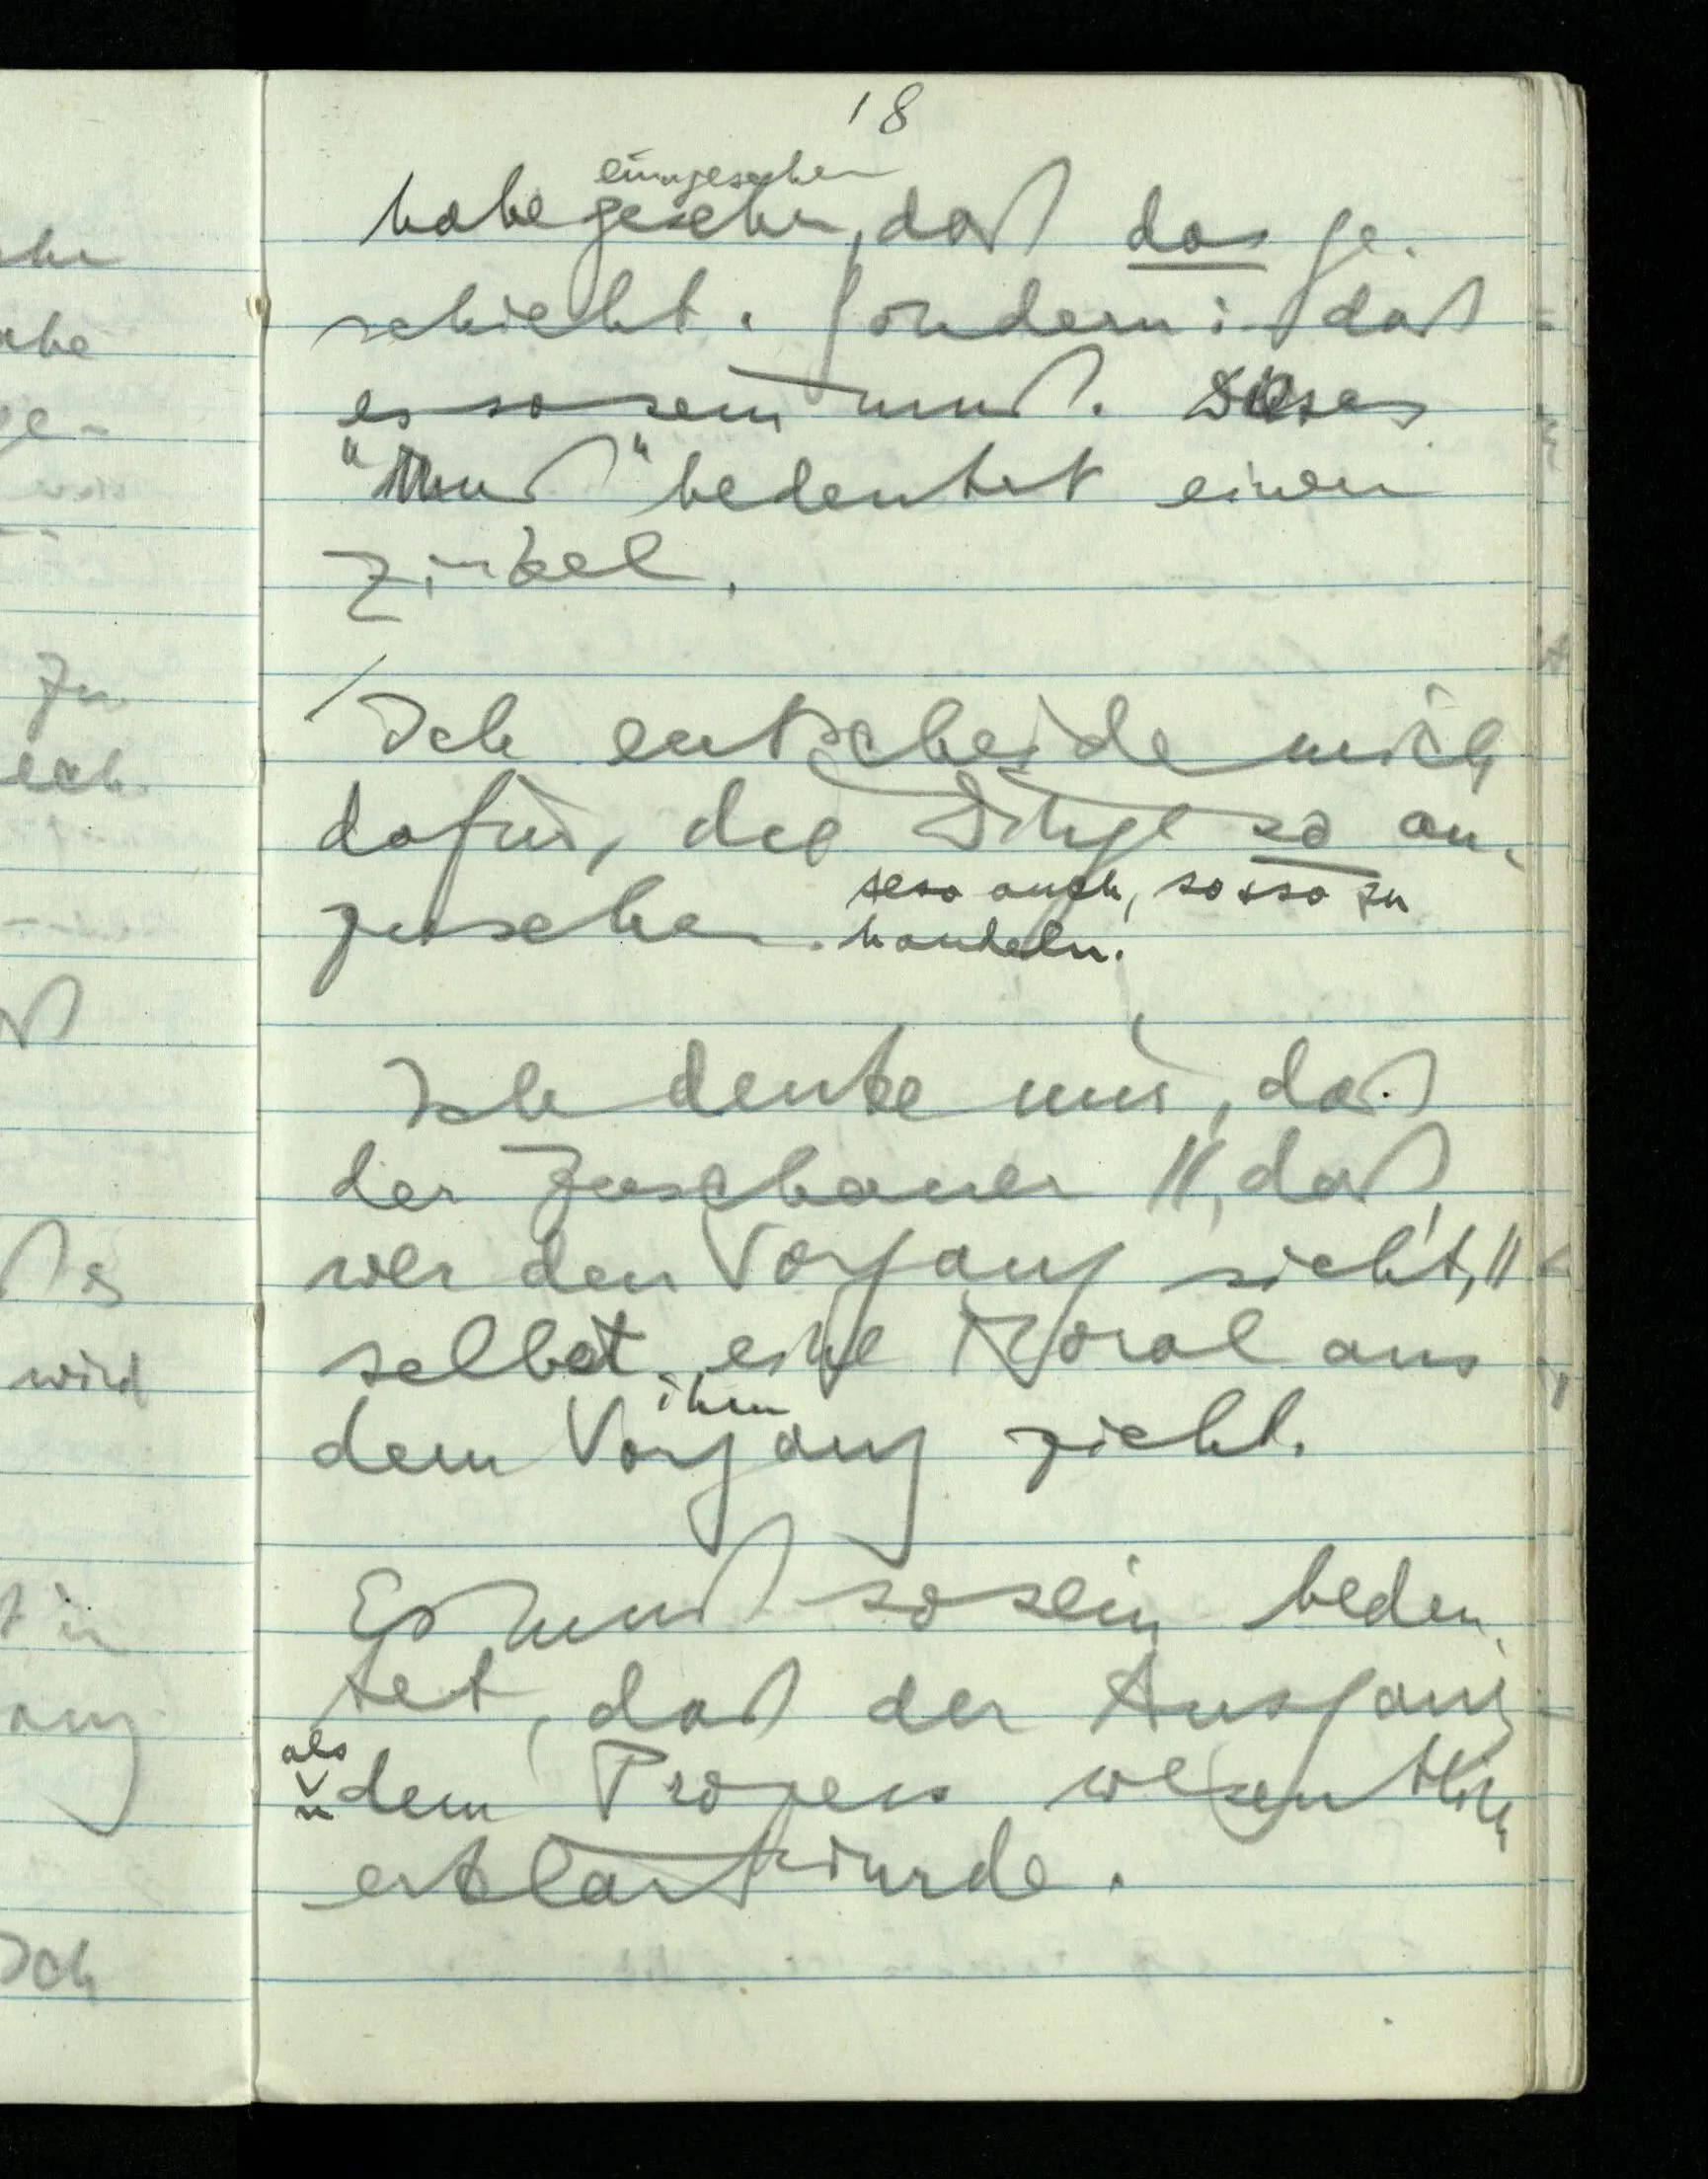 18
eingesehen
habe gesehen, daß das ge-
schieht. Sondern: daß
es so sein muß. Dieses
"Muß" bedeutet einen
Zirkel.
/ Ich entscheide mich
dafür, die Dinge so an-
zusehen. also auch, so & so zu
handeln.
Ich denke mir, daß
der Zuschauer //, daß,
wer den Vorgang sieht, //
selbst eine Moral aus
ihm
dem Vorgang zieht.
Es muß so sein bedeu-
tet, daß der Ausgang
als
dem Prozess wesentlich
erklärt wurde.